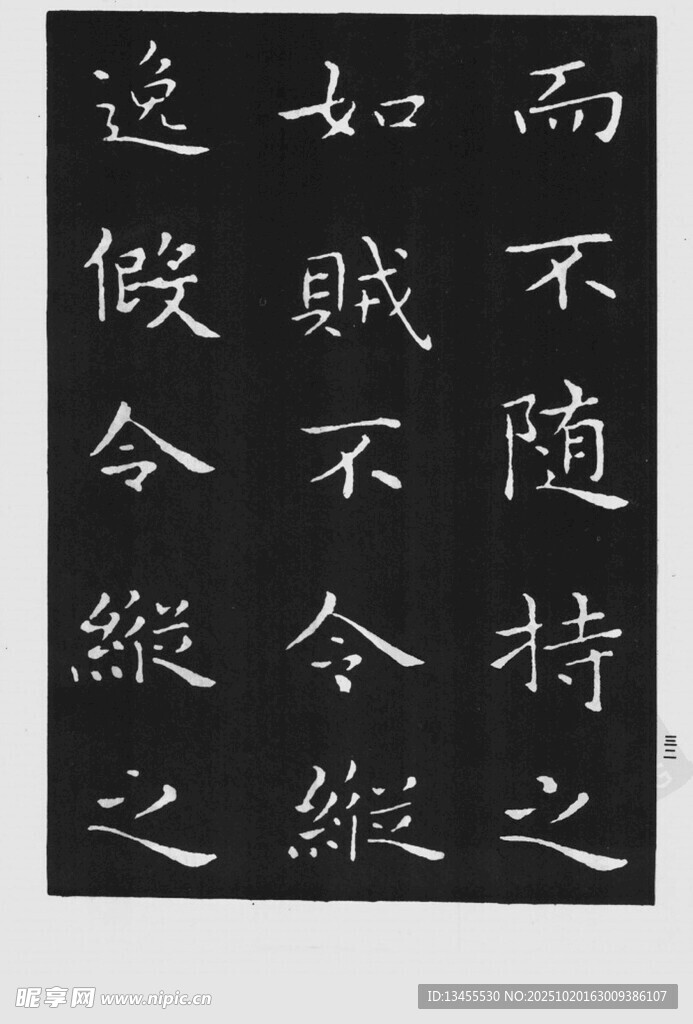 而不随持之
如賊不令縱
逸假令縱之
三三
昵享网 www.nipic.cn
ID:13455530 NO:20251020163009386107